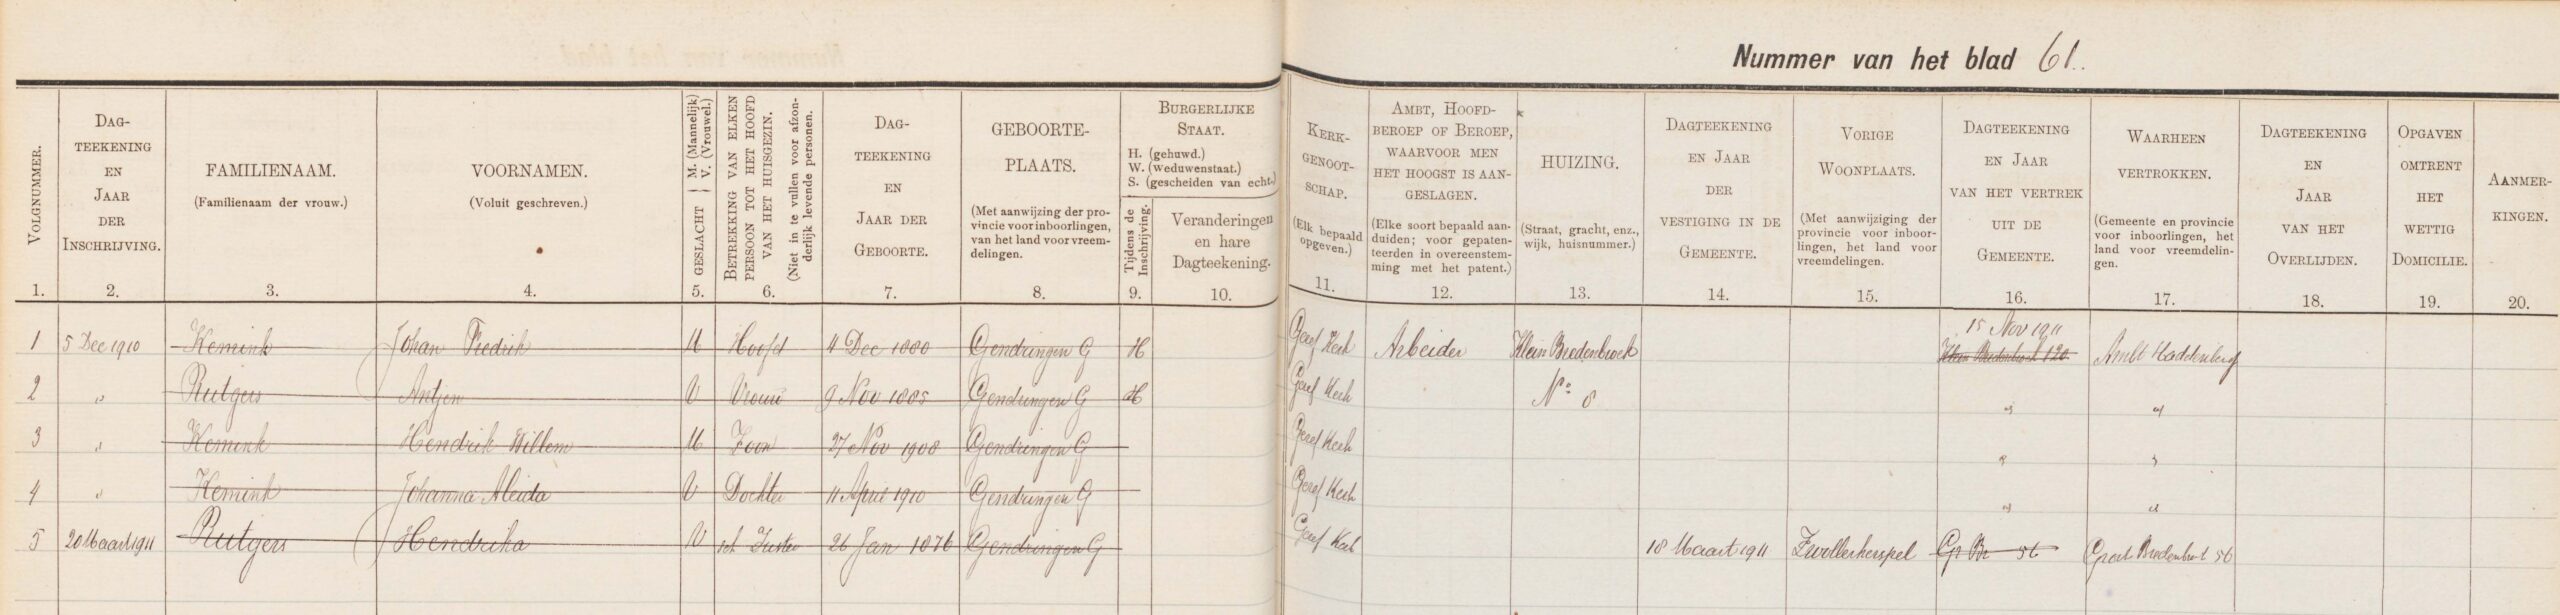 Nummer van het blad 61.
VOLGNUMMER.
1.
DAG-
TEEKENING
EN
JAAR
DER
INSCHRIJVING.
2.
FAMILIENAAM.
(Familienaam der vrouw.)
3.
VOORNAMEN.
(Voluit geschreven.)
4.
GESLACHT { M. (Mannelijk)
V. (Vrouwel.)
5.
BETREKKING VAN ELKEN
PERSOON TOT HET HOOFD
VAN HET HUISGEZIN.
(Niet in te vullen voor afzon-
derlijk levende personen.)
6.
DAG-
TEEKENING
EN
JAAR DER
GEBOORTE.
7.
GEBOORTE-
PLAATS.
(Met aanwijzing der pro-
vincie voor inboorlingen,
van het land voor vreem-
delingen.
8.
BURGERLIJKE
STAAT.
H. (gehuwd.)
W. (weduwenstaat.)
S. (gescheiden van echt.)
Tijdens de
Inschrijving.
9.
Veranderingen
en hare
Dagteekening.
10.
KERK-
GENOOT-
SCHAP.
(Elk bepaald
opgeven.)
11.
AMBT, HOOFD-
BEROEP OF BEROEP,
WAARVOOR MEN
HET HOOGST IS AAN-
GESLAGEN.
(Elke soort bepaald aan-
duiden; voor gepaten-
teerden in overeenstem-
ming met het patent.)
12.
HUIZING.
(Straat, gracht, enz.,
wijk, huisnummer.)
13.
DAGTEEKENING
EN JAAR
DER
VESTIGING IN DE
GEMEENTE.
14.
VORIGE
WOONPLAATS.
(Met aanwijziging der
provincie voor inboor-
lingen, het land voor
vreemdelingen.
15.
DAGTEEKENING
EN JAAR
VAN HET VERTREK
UIT DE
GEMEENTE.
16.
WAARHEEN
VERTROKKEN.
(Gemeente en provincie
voor inboorlingen, het
land voor vreemdelin-
gen.
17.
DAGTEEKENING
EN
JAAR
VAN HET
OVERLIJDEN.
18.
OPGAVEN
OMTRENT
HET
WETTIG
DOMICILIE.
19.
AANMER-
KINGEN.
20.
15 Nov 1911
1 5 Dec 1910 Kemink Johan Fredrik M Hoofd 11 Dec 1880 Gendringen G H Geref Kerk Arbeider Klein Bredenbroek Klein Bredenbroek 120 Ambt Haddenberg
2 " Rutgers Antjen V Vrouw 9 Nov 1885 Gendringen G H Geref Kerk No 8 " "
3 " Kemink Hendrik Willem M Zoon 27 Nov 1908 Gendringen G Geref Kerk " "
4 " Kemink Johanna Aleida V Dochter 11 April 1910 Gendringen G Geref Kerk " "
5 20 Maart 1911 Rutgers Hendrika V sch Zuster 26 Jan 1876 Gendringen G Geref Kerk 18 Maart 1911 Zwollerkerspel Gr Br 56 Groot Bredenbroek 56